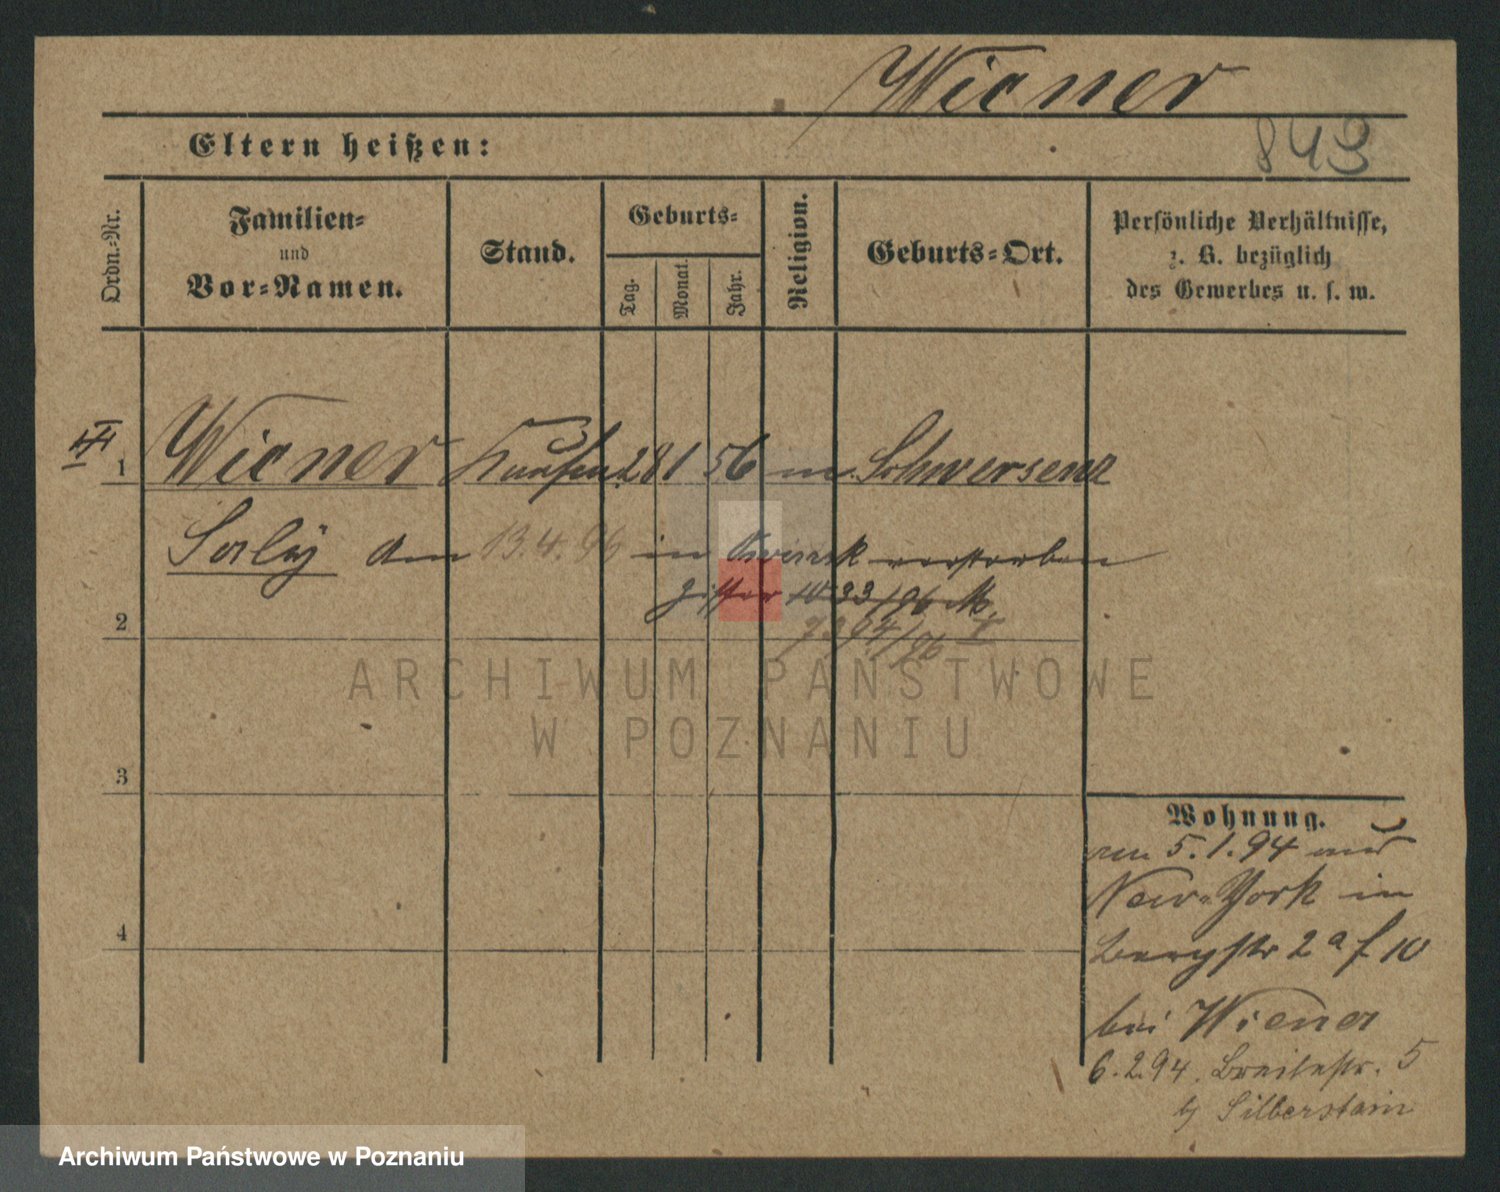 Wiener
843
Eltern heißen:
Ordn.-Nr.
Familien-
und
Vor-Namen.
Stand.
Geburts-
Tag.
Monat.
Jahr.
Religion.
Geburts-Ort.
Persönliche Verhältnisse,
z. B. bezüglich
des Gewerbes u. s. w.
1 Wiener Kaufm 28 1 56 m. Schwersenz
Saly am 13. 4. 96 in verstorben
1033/96 M.
7394/96 I
2
ARCHIWUM PAŃSTWOWE
W POZNANIU
3
4
Wohnung.
am 5. 1. 94 aus
New-York in
Bergstr 2 a f 10
bei Wiener
6. 2. 94. Breitestr. 5
b/ Silberstein
Archiwum Państwowe w Poznaniu